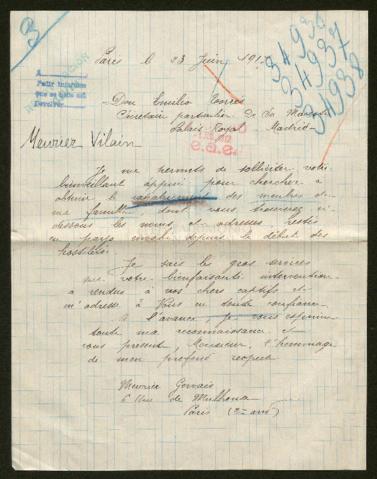 3
34936
34937
34938
Paris le 23 Juin 191
A
Prière
que sa lettre est
Don Emilio Torrès
Secrétaire particulier de Sa Majesté
Palais Royal Madrid
Meurier Vilain
Je me permets de solliciter votre
bienveillant appui pour chercher à
obtenir le rapatriement des membres de
ma famille dont vous trouverez ci-
dessous les noms et adresses restés
en pays envahi depuis le début des
hostilités.
Je sais les gros services
que votre bienfaisante intervention
a rendus à nos chers captifs et
m'adresse à Vous en toute confiance.
à l'avance, je vous exprime
toute ma reconnaissance et
vous présent, Monsieur, l'hommage
de mon profond respect
Meurier Gervais
6 Rue de Mulhouse
Paris (2me arrd)